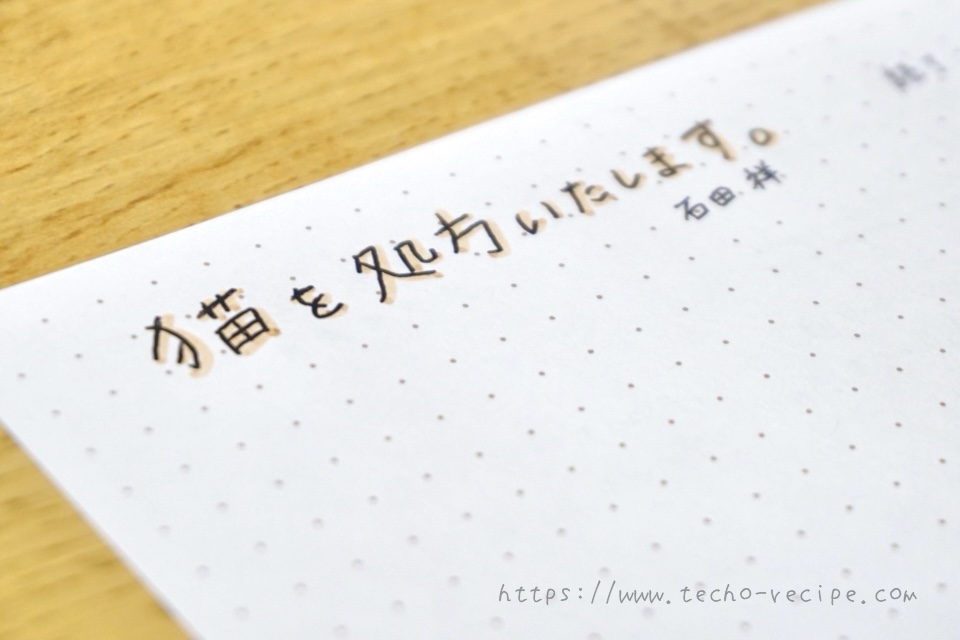 猫を処方いたします。
石田 祥
https://www.techo-recipe.com